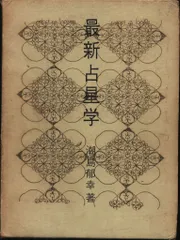 最新占星学
潮島郁幸 著